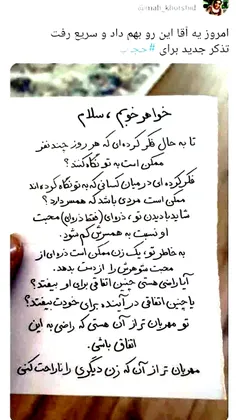 @mah_khorshid
امروز یه آقا این رو بهم داد و سریع رفت
تذکر جدید برای #حجاب
خواهر خوبم ، سلام
تا به حال فکر کرده‌ای که هر روز چند نفر
ممکن است به تو نگاه کنند؟
فکر کرده‌ای در میان کسانی که به تو نگاه کرده‌اند
ممکن است مردی باشد که همسر دارد؟
شاید با دیدن تو، ذره‌ای (فقط ذره‌ای) محبت
او نسبت به همسرش کم شود.
به خاطر تو، یک زن ممکن است ذره‌ای از
محبت شوهرش را از دست بدهد.
آیا راضی هستی چنین اتفاقی برای او بیفتد؟
یا چنین اتفاقی در آینده برای خودت بیفتد؟
تو مهربان تر از آن هستی که راضی به این
اتفاق باشی.
مهربان تر از آن که زن دیگری را ناراحت کنی